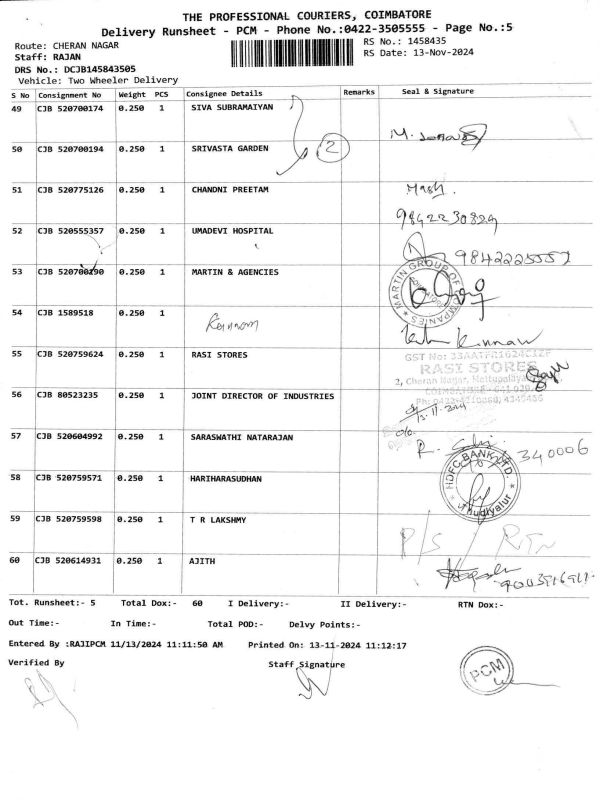 THE PROFESSIONAL COURIERS, COIMBATORE
Delivery Runsheet - PCM - Phone No.:0422-3505555 - Page No.:5
Route: CHERAN NAGAR
RS No.: 1458435
Staff: RAJAN
RS Date: 13-Nov-2024
DRS No.: DCJB145843505
Vehicle: Two Wheeler Delivery
S No Consignment No Weight PCS Consignee Details Remarks Seal & Signature
49 CJB 520700174 0.250 1 SIVA SUBRAMAIYAN
50 CJB 520700194 0.250 1 SRIVASTA GARDEN 2
51 CJB 520775126 0.250 1 CHANDNI PREETAM
9842230829
52 CJB 520555357 0.250 1 UMADEVI HOSPITAL
9842225551
53 CJB 520700290 0.250 1 MARTIN & AGENCIES
MARTIN GROUP OF COMPANIES
54 CJB 1589518 0.250 1
Kannan
55 CJB 520759624 0.250 1 RASI STORES
GST No: 33AATFR1624C1ZF
RASI STORES
2, Cheran Nagar, Mettupalayam
COIMBATORE - 641 029.
56 CJB 80523235 0.250 1 JOINT DIRECTOR OF INDUSTRIES
57 CJB 520604992 0.250 1 SARASWATHI NATARAJAN
340006
58 CJB 520759571 0.250 1 HARIHARASUDHAN
HDFC BANK LTD.
Thudiyalur
59 CJB 520759598 0.250 1 T R LAKSHMY
P/S / RTN
60 CJB 520614931 0.250 1 AJITH
Tot. Runsheet:- 5 Total Dox:- 60 I Delivery:- II Delivery:- RTN Dox:-
Out Time:- In Time:- Total POD:- Delvy Points:-
Entered By :RAJIPCM 11/13/2024 11:11:50 AM Printed On: 13-11-2024 11:12:17
Verified By Staff Signature
PCM